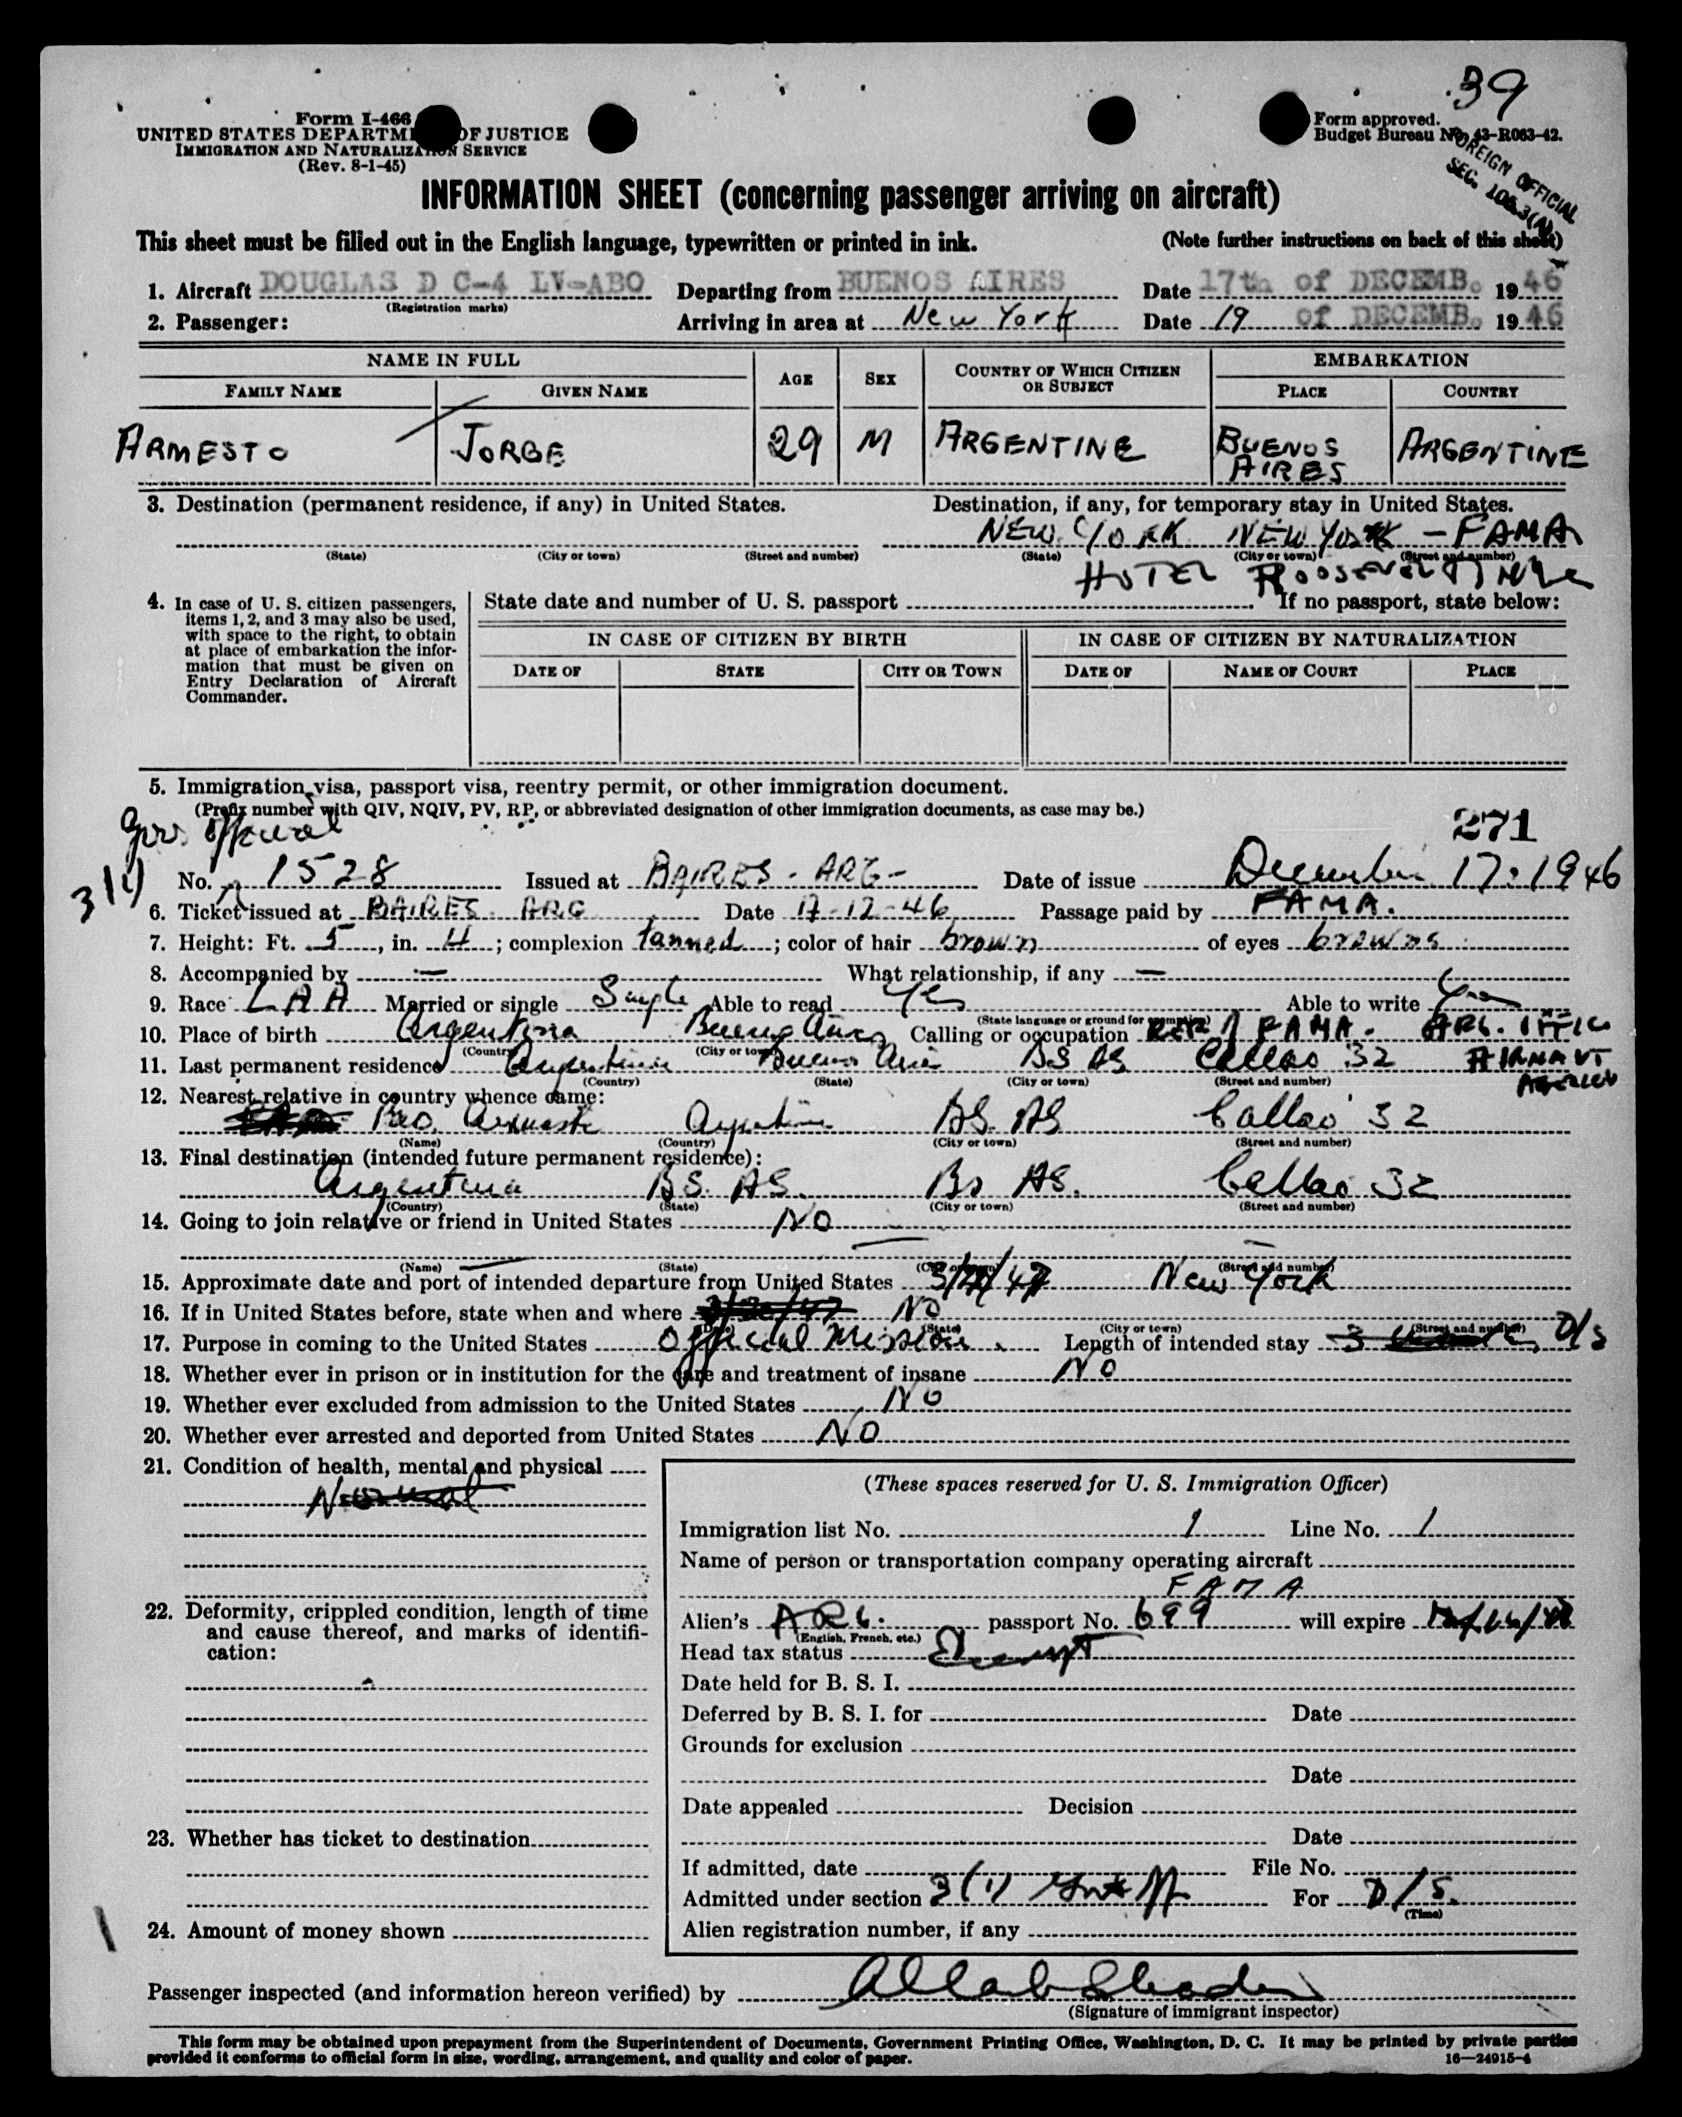 39
Form I-466
UNITED STATES DEPARTM OF JUSTICE
IMMIGRATION AND NATURALIZATION SERVICE
(Rev. 8-1-45)
Form approved.
Budget Bureau No. 43-R063-42.
FOREIGN OFFICIAL
SEC.
INFORMATION SHEET (concerning passenger arriving on aircraft)
This sheet must be filled out in the English language, typewritten or printed in ink. (Note further instructions on back of this sheet)
1. Aircraft DOUGLAS D C-4 LV-ABO Departing from BUENOS AIRES Date 17th of DECEMB. 1946
(Registration marks)
2. Passenger: Arriving in area at New York Date 19 of DECEMB. 1946
NAME IN FULL AGE SEX COUNTRY OF WHICH CITIZEN OR SUBJECT EMBARKATION
FAMILY NAME GIVEN NAME PLACE COUNTRY
ARMESTO JORGE 29 M ARGENTINE BUENOS AIRES ARGENTINE
3. Destination (permanent residence, if any) in United States. Destination, if any, for temporary stay in United States.
NEW YORK NEW YORK - FAMA
(State) (City or town) (Street and number) (State) (City or town) (Street and number)
HOTEL ROOSEVELT
4. In case of U. S. citizen passengers, items 1, 2, and 3 may also be used, with space to the right, to obtain at place of embarkation the information that must be given on Entry Declaration of Aircraft Commander.
State date and number of U. S. passport If no passport, state below:
IN CASE OF CITIZEN BY BIRTH IN CASE OF CITIZEN BY NATURALIZATION
DATE OF STATE CITY OR TOWN DATE OF NAME OF COURT PLACE
5. Immigration visa, passport visa, reentry permit, or other immigration document.
(Prefix number with QIV, NQIV, PV, RP, or abbreviated designation of other immigration documents, as case may be.)
271
Gov. Official
3(1)
No. 1528 Issued at BAIRES - ARG - Date of issue December 17-1946
6. Ticket issued at BAIRES ARG Date 17-12-46 Passage paid by FAMA.
7. Height: Ft. 5, in. 4; complexion tanned; color of hair brown of eyes browns
8. Accompanied by — What relationship, if any —
9. Race LAA Married or single Single Able to read Yes Able to write Yes
(State language or ground for exemption)
10. Place of birth Argentina Buenos Aires Calling or occupation REP / FAMA. ARG.
(Country) (City or town)
11. Last permanent residence Argentina Buenos Aires BS AS Callao 32
(Country) (State) (City or town) (Street and number)
12. Nearest relative in country whence came:
Argentina BS. AS Callao 32
(Name) (Country) (City or town) (Street and number)
13. Final destination (intended future permanent residence):
Argentina BS. AS. Bs AS. Callao 32
(Country) (State) (City or town) (Street and number)
14. Going to join relative or friend in United States NO
(Name) (State) (City or town) (Street and number)
15. Approximate date and port of intended departure from United States New York
16. If in United States before, state when and where NO
(Date) (State) (City or town) (Street and number)
17. Purpose in coming to the United States Official Mission. Length of intended stay 3 D/S
18. Whether ever in prison or in institution for the care and treatment of insane NO
19. Whether ever excluded from admission to the United States NO
20. Whether ever arrested and deported from United States NO
21. Condition of health, mental and physical
Normal
22. Deformity, crippled condition, length of time and cause thereof, and marks of identification:
23. Whether has ticket to destination
24. Amount of money shown
(These spaces reserved for U. S. Immigration Officer)
Immigration list No. 1 Line No. 1
Name of person or transportation company operating aircraft
FAMA
Alien's ARG. passport No. 699 will expire
(English, French, etc.)
Head tax status Exempt
Date held for B. S. I.
Deferred by B. S. I. for Date
Grounds for exclusion
Date
Date appealed Decision
Date
If admitted, date File No.
Admitted under section 3(1) For D/S.
(Time)
Alien registration number, if any
Passenger inspected (and information hereon verified) by
(Signature of immigrant inspector)
This form may be obtained upon prepayment from the Superintendent of Documents, Government Printing Office, Washington, D. C. It may be printed by private parties
provided it conforms to official form in size, wording, arrangement, and quality and color of paper. 16—24915-4